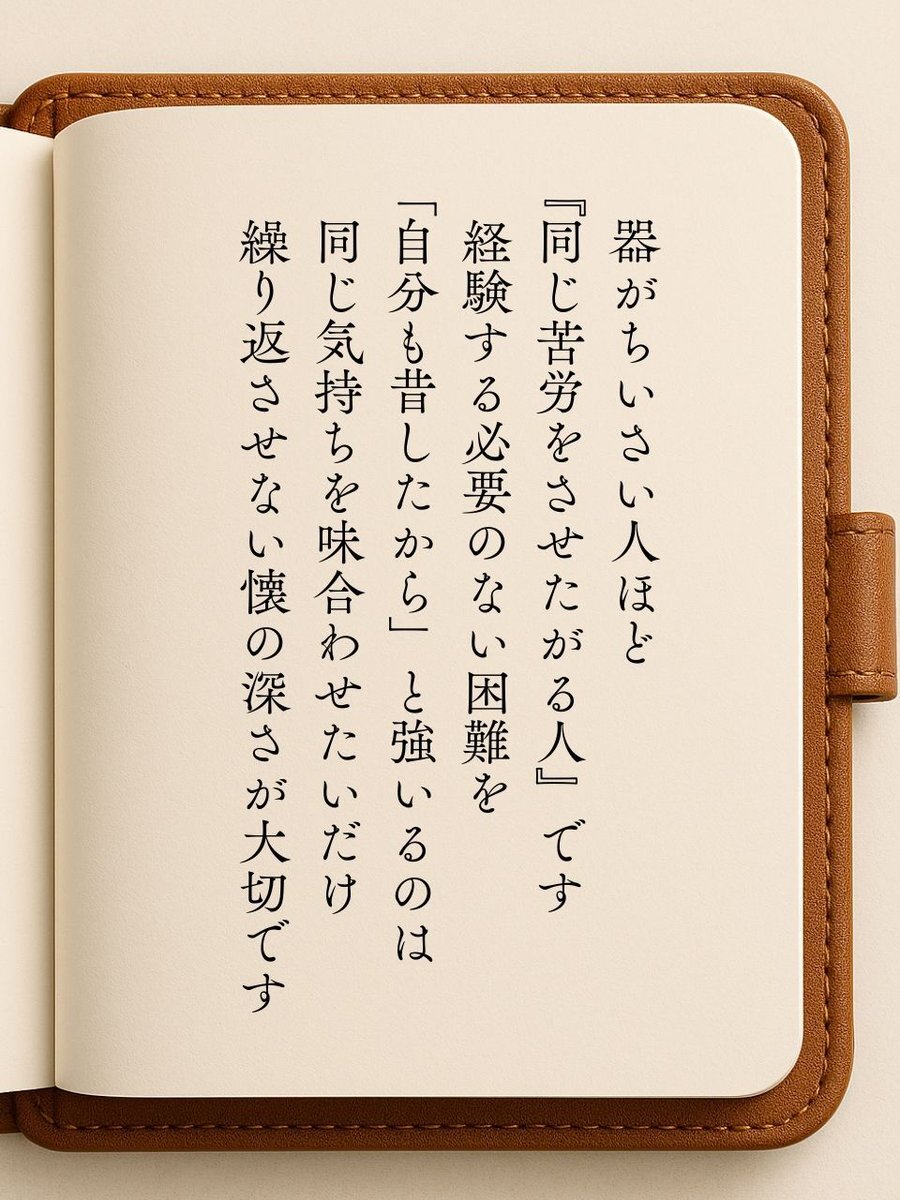 器がちいさい人ほど
『同じ苦労をさせたがる人』です
経験する必要のない困難を
「自分も昔したから」と強いるのは
同じ気持ちを味合わせたいだけ
繰り返させない懐の深さが大切です